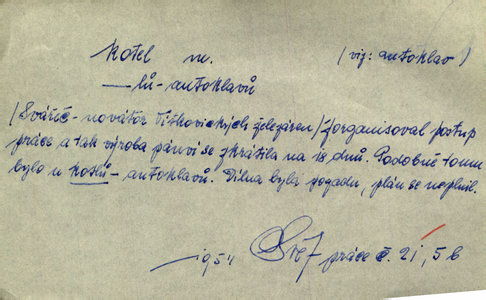 kotel m. (viz: autoklav)
— lů - autoklavů
/Svářeč - novátor Vítkovických železáren/ Zorganisoval postup
práce a tak výroba pánví se zkrátila na 18 dnů. Podobně tomu
bylo u kotlů - autoklavů. Dílna byla pozadu, plán se neplnil.
1954 Svět práce č. 21, 5 b